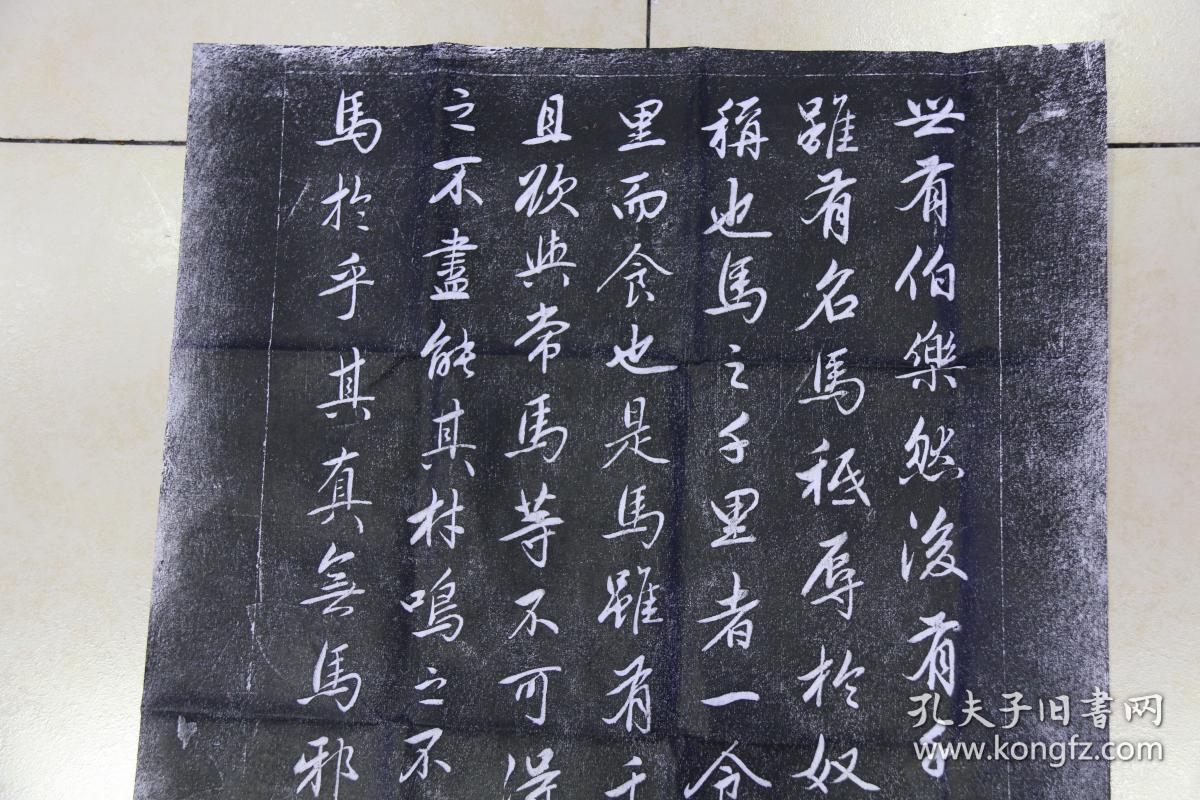 世有伯樂然後有千
雖有名馬秪辱於奴
稱也馬之千里者一食
里而食也是馬雖有千
且欲與常馬等不可得
之不盡能其材鳴之不
馬於乎其真無馬邪
孔夫子旧書网
www.kongfz.com